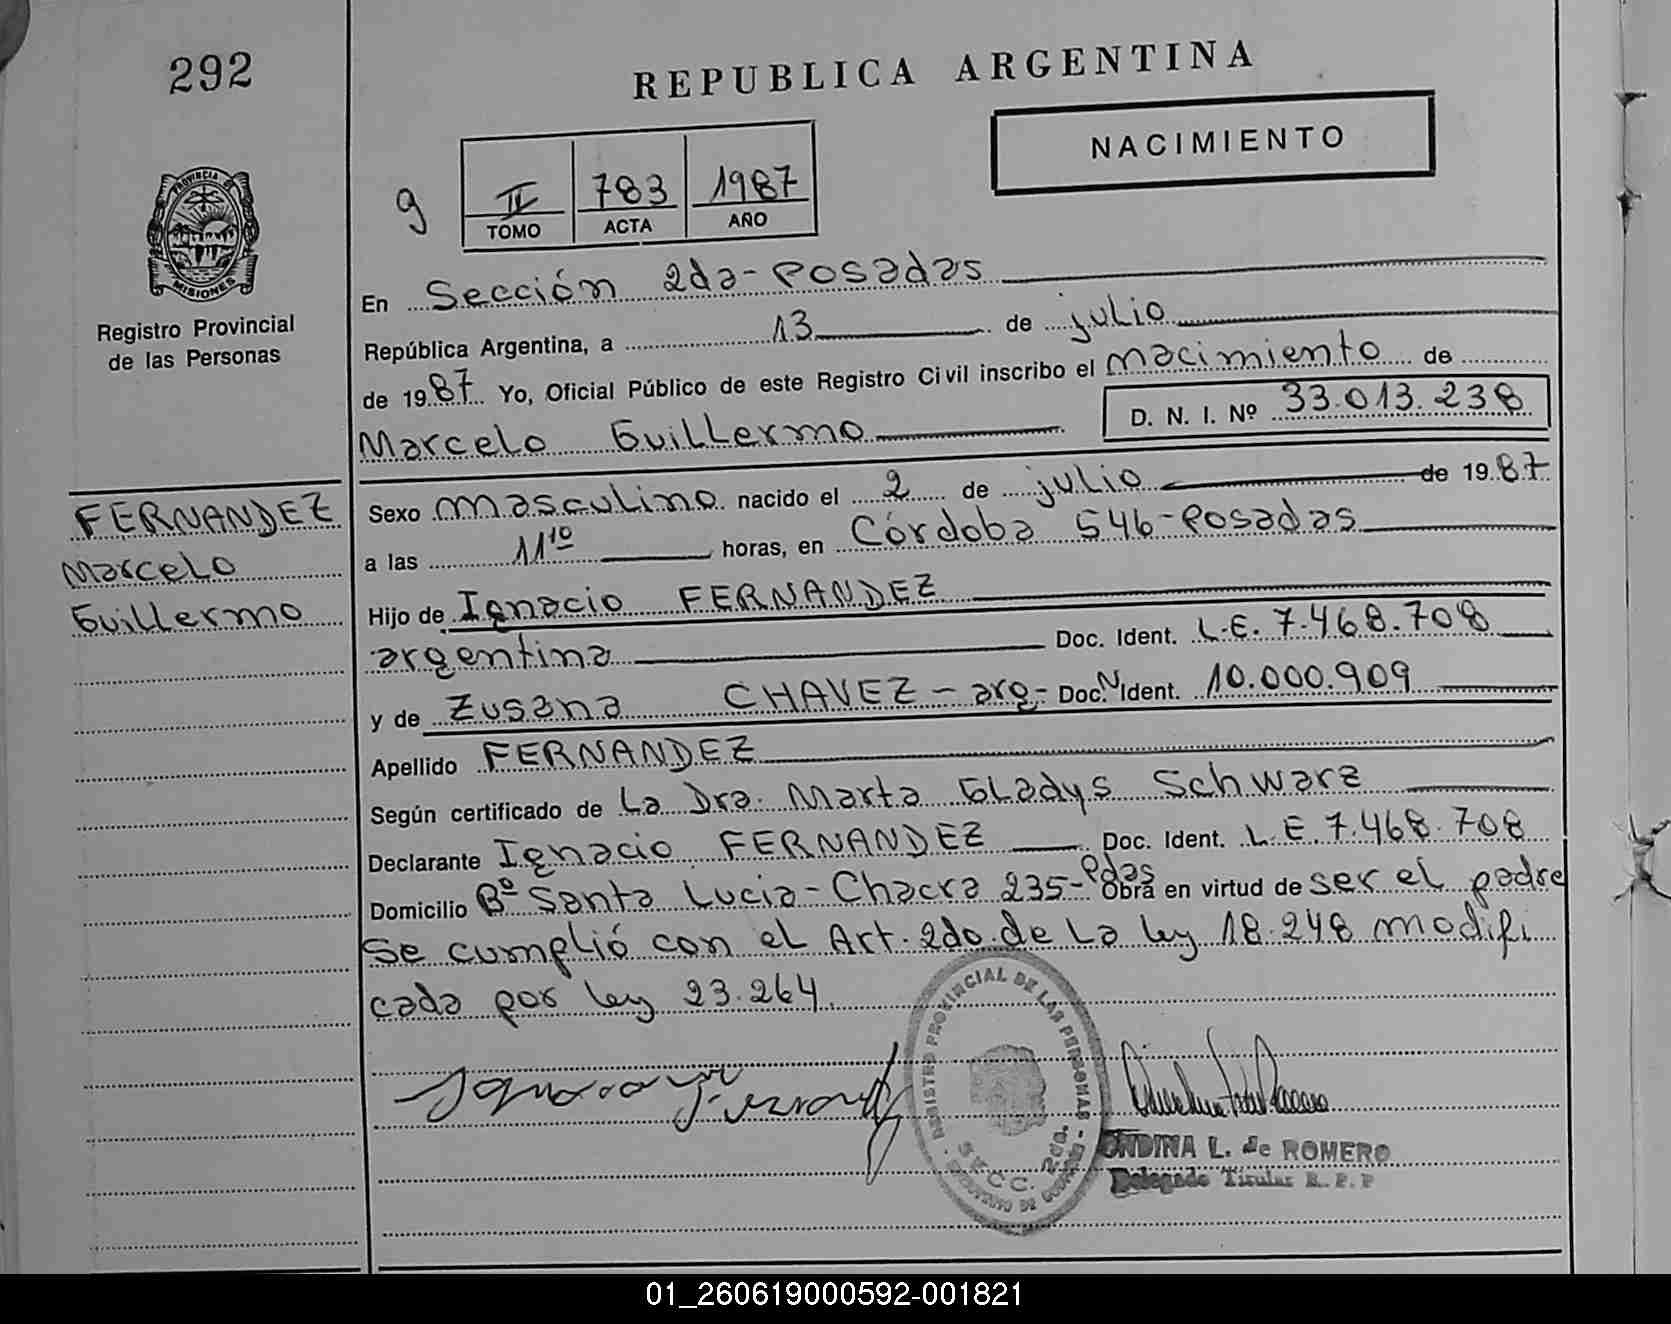 292
REPUBLICA ARGENTINA
NACIMIENTO
9
II 783 1987
TOMO ACTA AÑO
PROVINCIA DE
MISIONES
Registro Provincial
de las Personas
En Sección 2da-Posadas
República Argentina, a 13 de julio
de 1987 Yo, Oficial Público de este Registro Civil inscribo el nacimiento de
D. N. I. Nº 33.013.238
Marcelo Guillermo
FERNANDEZ
Marcelo
Guillermo
Sexo masculino nacido el 2 de julio de 1987
a las 11¹⁰ horas, en Córdoba 546-Posadas
Hijo de Ignacio FERNANDEZ
argentina Doc. Ident. L.E. 7.468.708
y de Zusana CHAVEZ - arg- Doc. N Ident. 10.000.909
Apellido FERNANDEZ
Según certificado de La Dra. Marta Gladys Schwarz
Declarante Ignacio FERNANDEZ Doc. Ident. L.E. 7.468.708
Domicilio Bº Santa Lucia-Chacra 235-Pdas Obra en virtud de ser el padre
Se cumplió con el Art. 2do. de La ley 18.248 modifi
cada por ley 23.264.
REGISTRO PROVINCIAL DE LAS PERSONAS
SECC. 2da.
ONDINA L. de ROMERO
Delegado Titular R. P. P
01_260619000592-001821